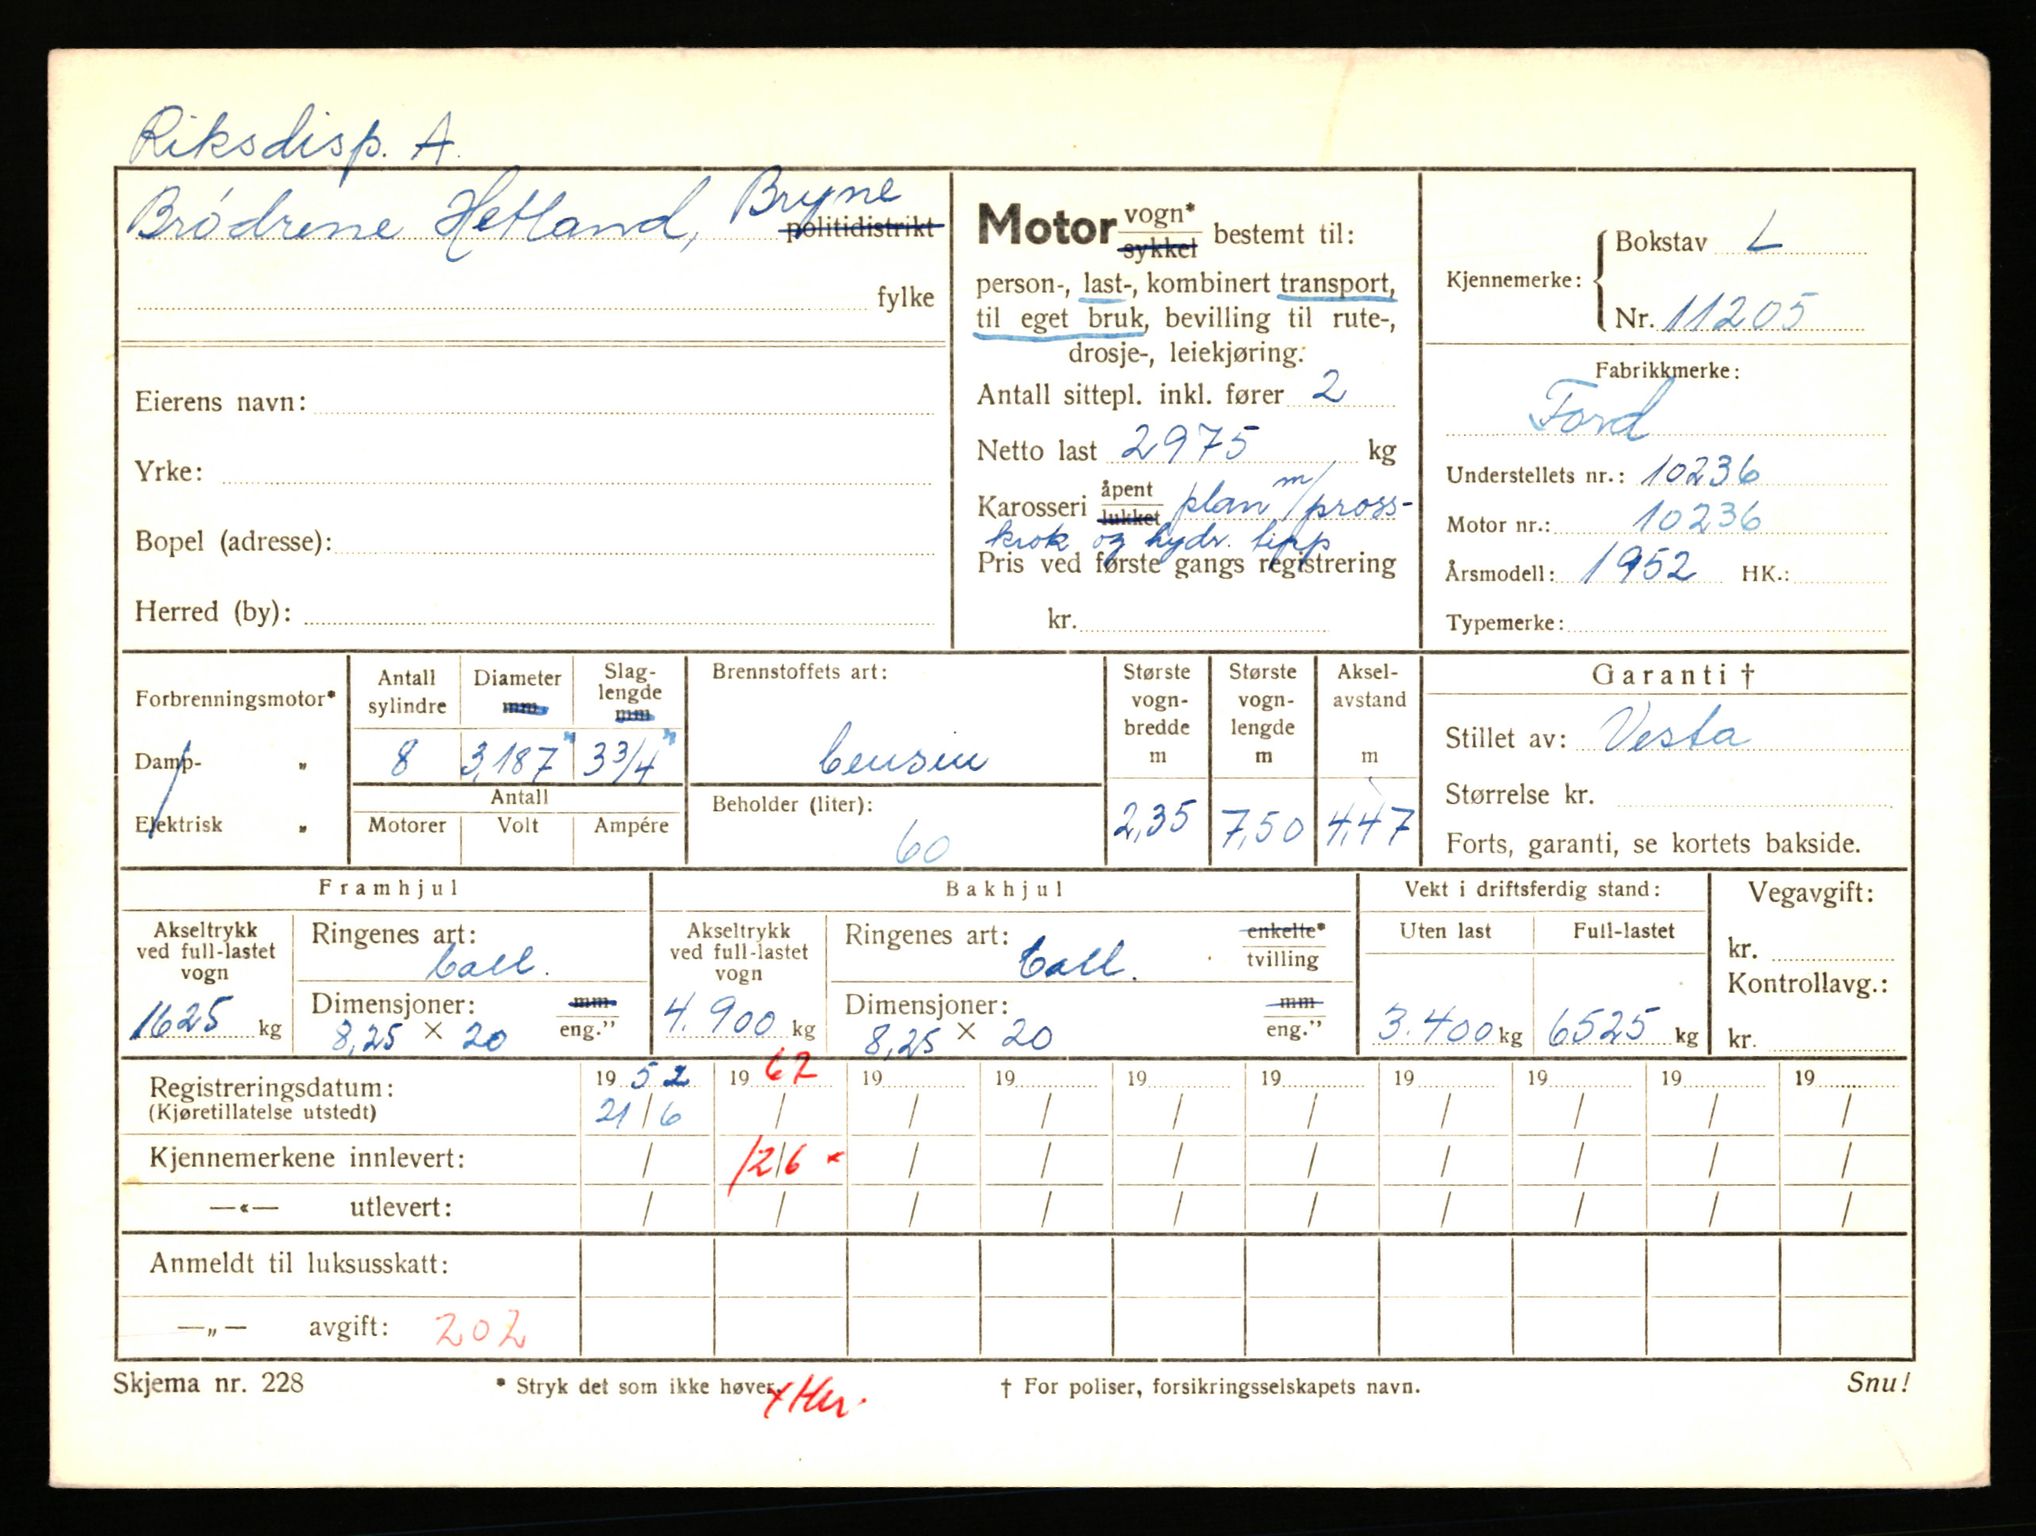 Riksdisp. A.
Brödrene Hetland, Bryne
politidistrikt
fylke
Eierens navn:
Yrke:
Bopel (adresse):
Herred (by):
Motor vogn* sykkel bestemt til:
person-, last-, kombinert transport,
til eget bruk, bevilling til rute-,
drosje-, leiekjøring.
Antall sittepl. inkl. fører 2
Netto last 2975 kg
Karosseri åpent lukket plan m/pross-
krok og hydr. tipp
Pris ved første gangs registrering
kr.
Kjennemerke:
Bokstav L
Nr. 11205
Fabrikkmerke:
Ford
Understellets nr.: 10236
Motor nr.: 10236
Årsmodell: 1952 HK.:
Typemerke:
Forbrenningsmotor*
Damp- „
Elektrisk „
Antall sylindre
Diameter mm
Slag-lengde mm
8 3,187" 3 3/4"
Antall
Motorer Volt Ampére
Brennstoffets art:
bensin
Beholder (liter):
60
Største vogn-bredde m
2,35
Største vogn-lengde m
7,50
Aksel-avstand m
4,47
Garanti †
Stillet av: Vesta
Størrelse kr.
Forts, garanti, se kortets bakside.
Framhjul
Akseltrykk ved full-lastet vogn
1625 kg
Ringenes art:
ball.
Dimensjoner: mm
8,25 × 20 eng."
Bakhjul
Akseltrykk ved full-lastet vogn
4.900 kg
Ringenes art: enkelte*
ball. tvilling
Dimensjoner: mm
8,25 × 20 eng."
Vekt i driftsferdig stand:
Uten last Full-lastet
3.400 kg 6525 kg
Vegavgift:
kr.
Kontrollavg.:
kr.
Registreringsdatum: 19 52 19 62 19 19 19 19 19 19 19 19
(Kjøretillatelse utstedt) 21/6 / / / / / / / / /
Kjennemerkene innlevert: / 12/6 * / / / / / / / /
—«— utlevert: / / / / / / / / / /
Anmeldt til luksusskatt:
—„— avgift: 202
Skjema nr. 228 * Stryk det som ikke høver. † For poliser, forsikringsselskapets navn. Snu!